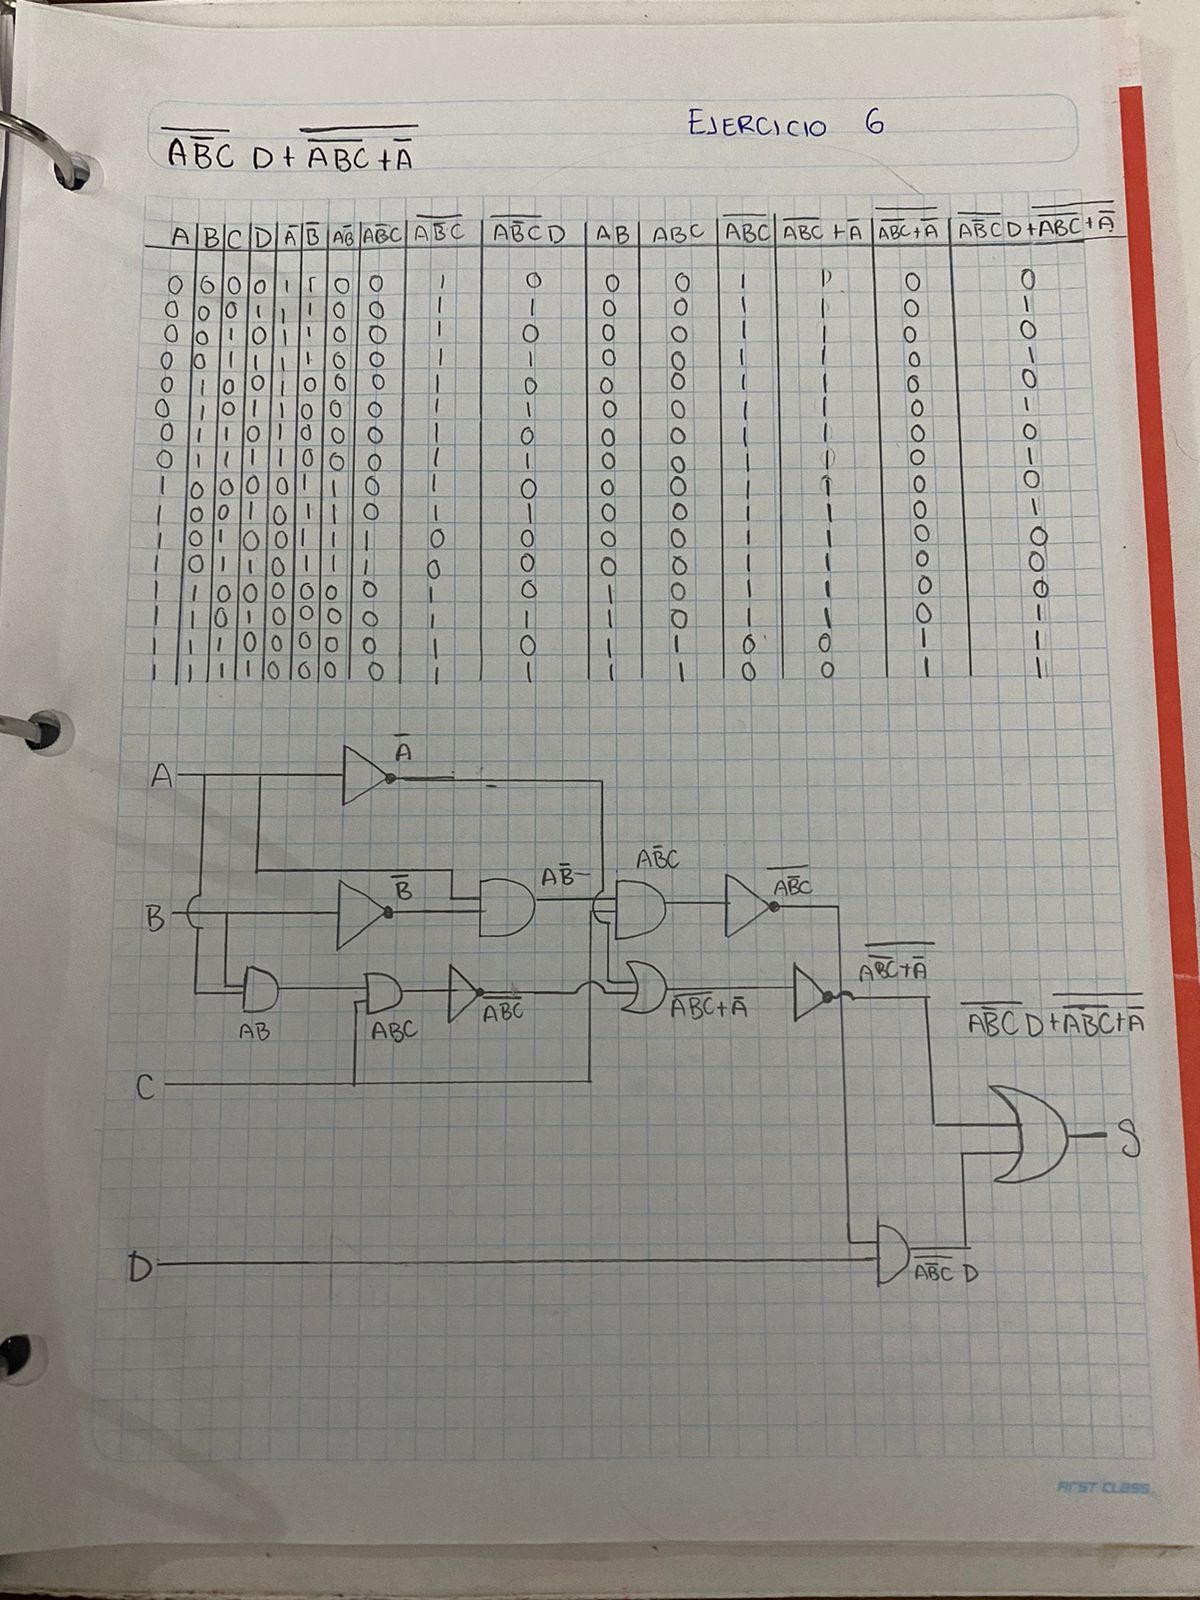 EJERCICIO 6
A̅B̿C̅ D + A̿B̿C̿ ̅+̅ ̅A̿
A B C D A̅ B̅ AB̅ AB̅C A̅B̿C̅ A̅B̿C̅ D AB ABC A̅B̅C̅ A̅B̅C̅ + A̅ A̿B̿C̿+̅A̿ A̅B̿C̅ D + A̿B̿C̿+̅A̿
0 0 0 0 1 1 0 0 1 0 0 0 1 1 0 0
0 0 0 1 1 1 0 0 1 1 0 0 1 1 0 1
0 0 1 0 1 1 0 0 1 0 0 0 1 1 0 0
0 0 1 1 1 1 0 0 1 1 0 0 1 1 0 1
0 1 0 0 1 0 0 0 1 0 0 0 1 1 0 0
0 1 0 1 1 0 0 0 1 1 0 0 1 1 0 1
0 1 1 0 1 0 0 0 1 0 0 0 1 1 0 0
0 1 1 1 1 0 0 0 1 1 0 0 1 1 0 1
1 0 0 0 0 1 1 0 1 0 0 0 1 1 0 0
1 0 0 1 0 1 1 0 1 1 0 0 1 1 0 1
1 0 1 0 0 1 1 1 0 0 0 0 1 1 0 0
1 0 1 1 0 1 1 1 0 0 0 0 1 1 0 0
1 1 0 0 0 0 0 0 1 0 1 0 1 1 0 0
1 1 0 1 0 0 0 0 1 1 1 0 1 1 0 1
1 1 1 0 0 0 0 0 1 0 1 1 0 0 1 1
1 1 1 1 0 0 0 0 1 1 1 1 0 0 1 1
A A̅
B B̅ AB̅ AB̅C A̅B̿C̅
AB ABC A̅B̅C̅ A̅B̅C̅+A̅ A̿B̿C̿+̅A̿
A̅B̿C̅ D + A̿B̿C̿+̅A̿
C
S
D A̅B̿C̅ D
FIRST CLASS